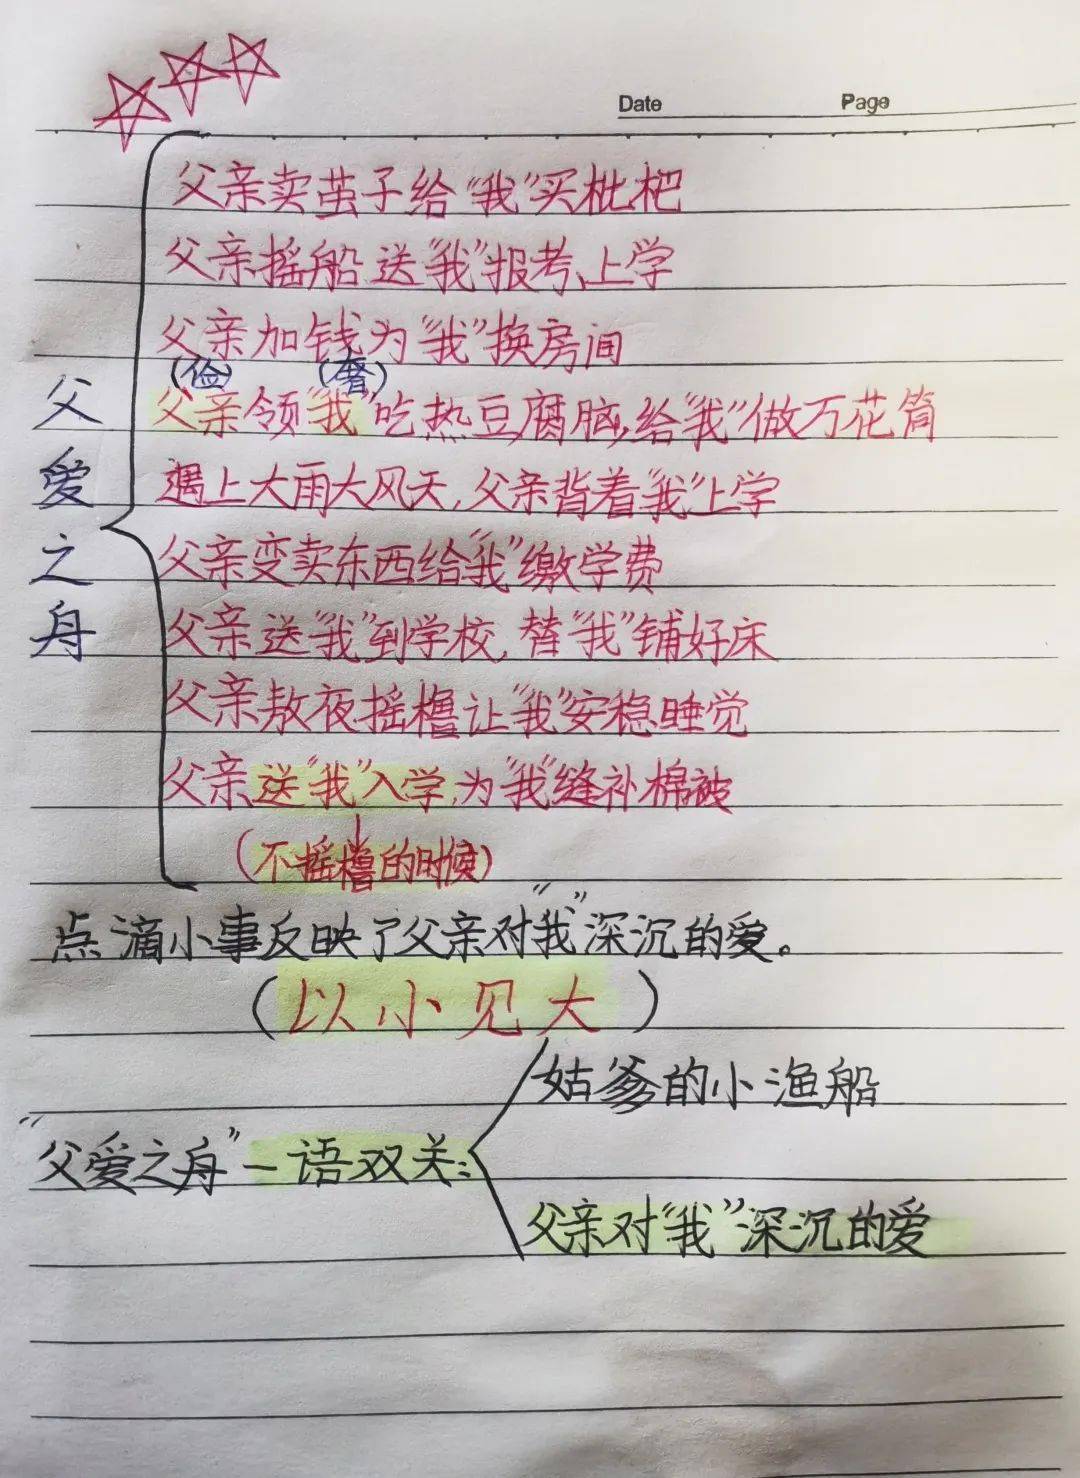 Date Page
父亲卖茧子给“我”买枇杷
父亲摇船送“我”报考、上学
父亲加钱为“我”换房间
(俭) (奢)
父亲领“我”吃热豆腐脑,给“我”做万花筒
遇上大雨大风天,父亲背着“我”上学
父亲变卖东西给“我”缴学费
父亲送“我”到学校,替“我”铺好床
父亲熬夜摇橹让“我”安稳睡觉
父亲送“我”入学,为“我”缝补棉被
(不摇橹的时候)
父爱之舟
点滴小事反映了父亲对“我”深沉的爱。
(以小见大)
姑爹的小渔船
“父爱之舟”一语双关:
父亲对“我”深沉的爱